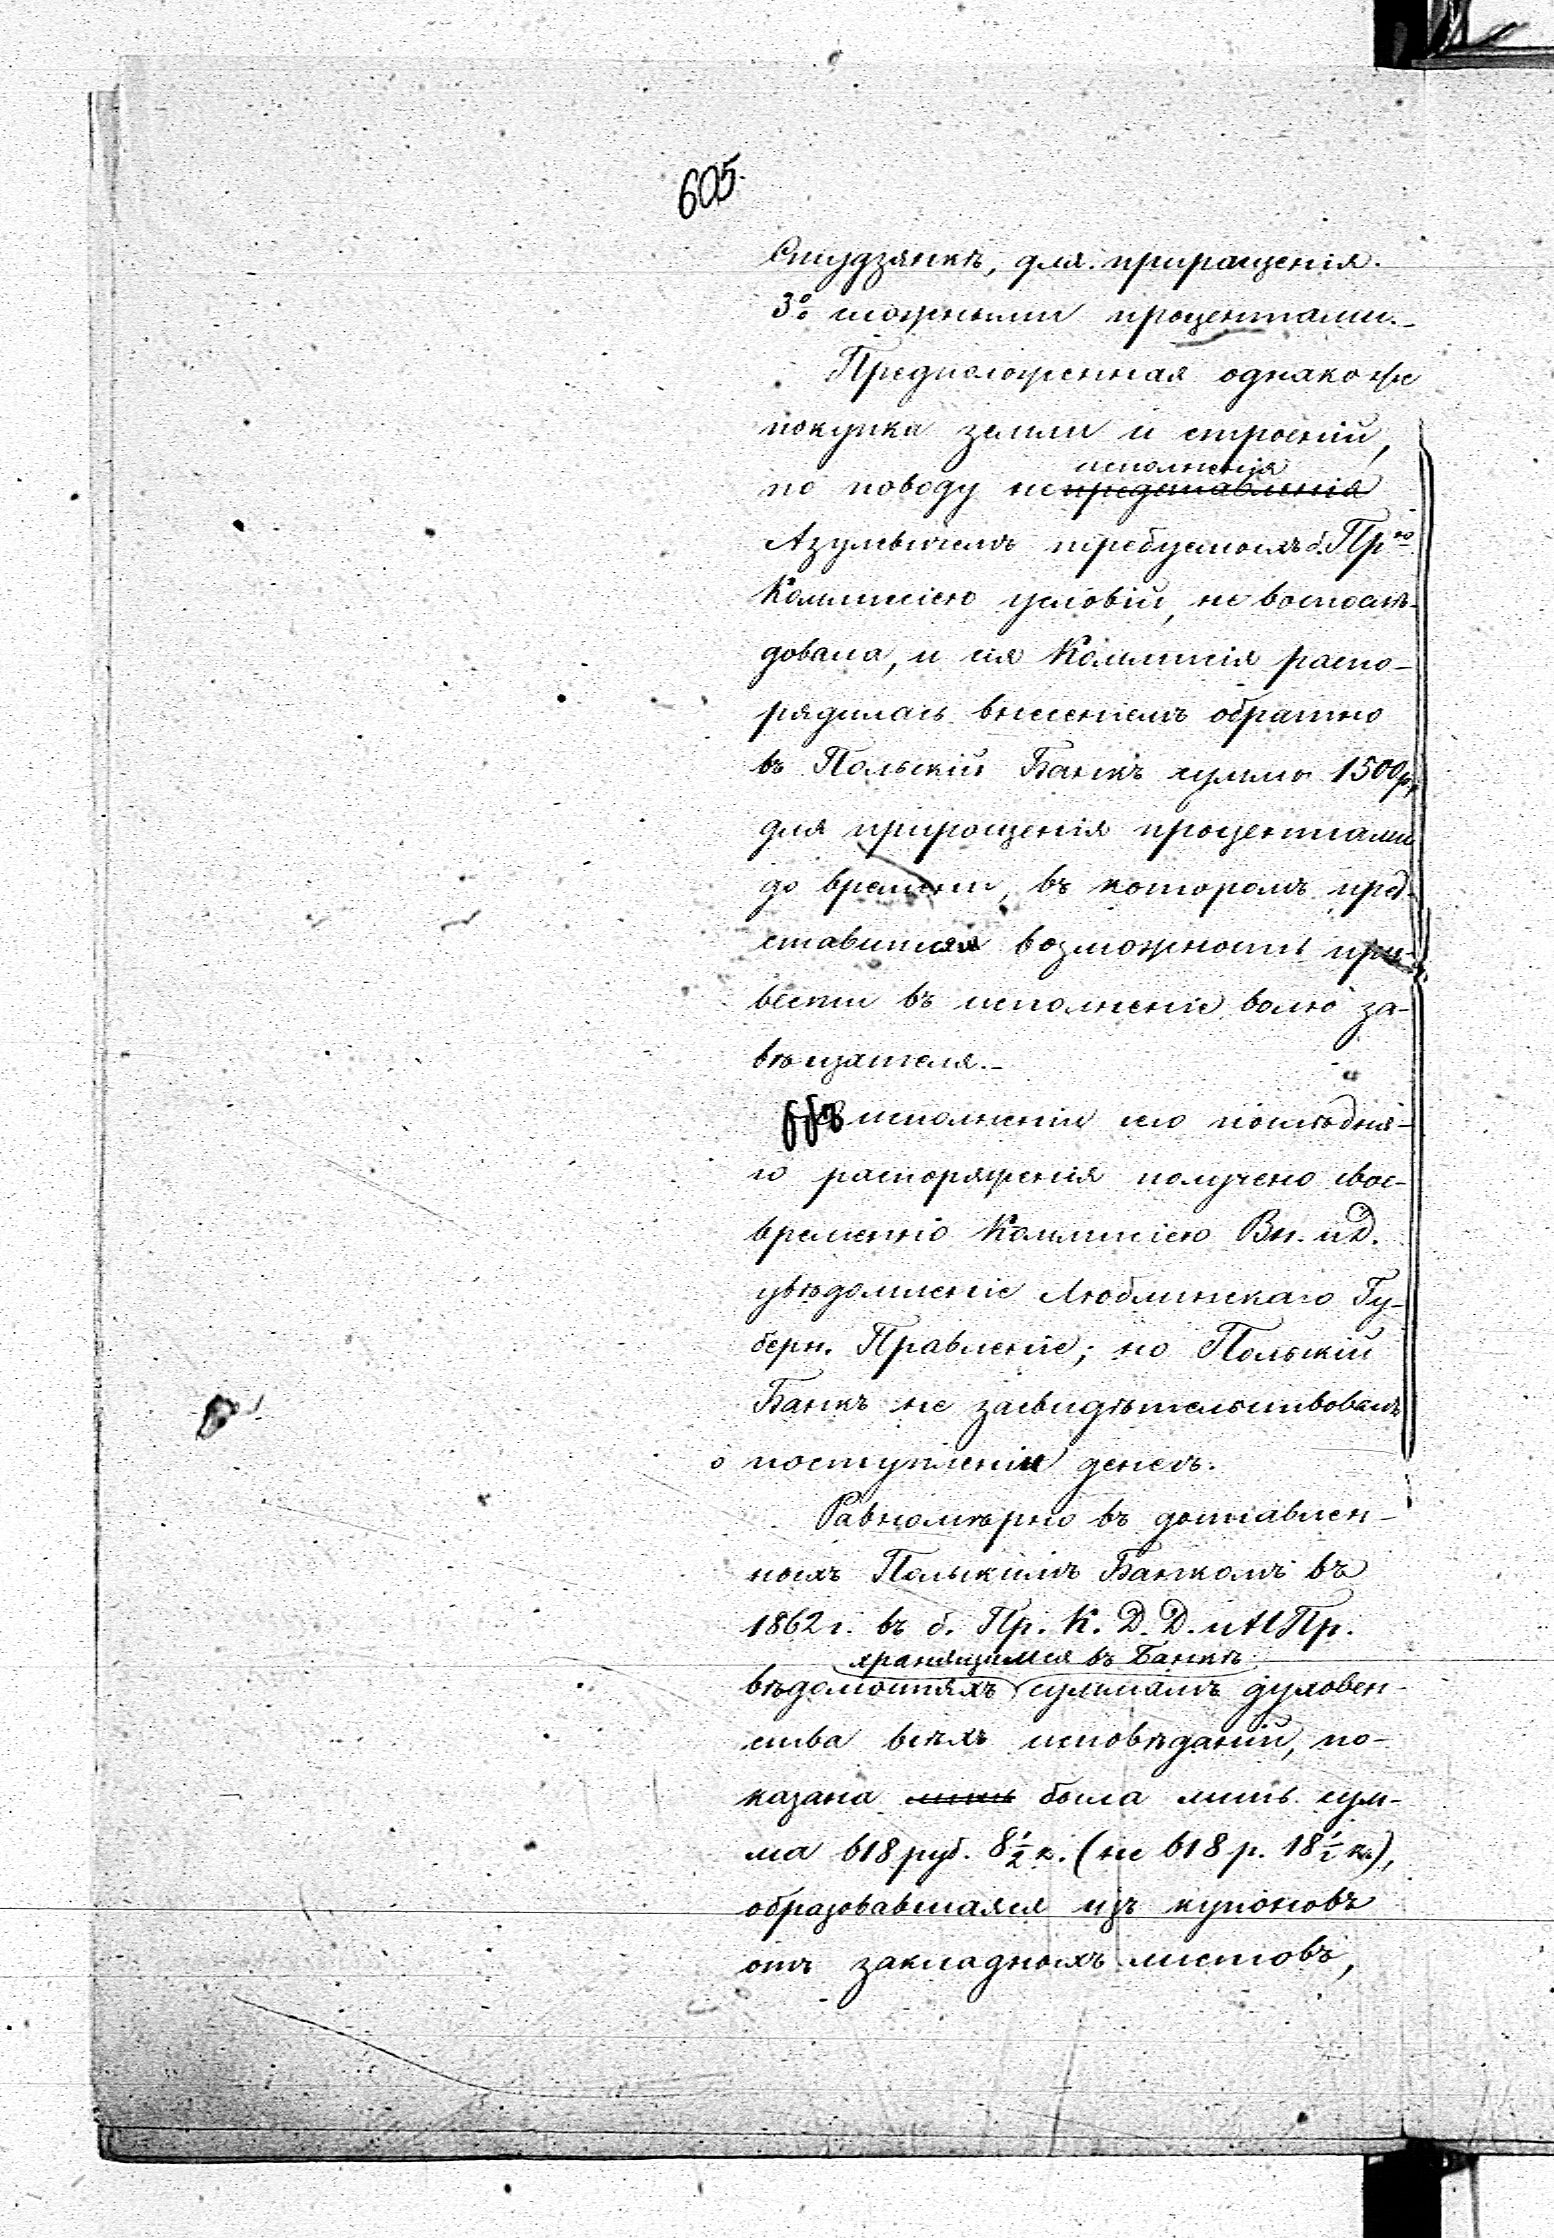 605.
Студзянкѣ, для приращенія
3% сложными процентами.
Предположенная однако же
покупка земли и строеній,
исполненія
по поводу непредставленія
Азулевичемъ требуемыхъ б. Пр.ю
Коммисіею условій, не воспослѣ-
довала, и сія Коммисія распо-
рядилась внесеніемъ обратно
въ Польскій Банкъ суммы 1500 р,
для прирощенія процентами
до времени, въ которомъ пред-
ставится возможность при-
вести въ исполненіе волю за-
вѣщателя.
Объ исполненіи сего послѣдня-
го распоряженія получено свое-
временно Коммисіею Вн. и Д.
увѣдомленіе Люблинскаго Гу-
берн. Правленіе; но Польскій
Банкъ не засвидѣтельствовалъ
о поступленіи денегъ.
Равномѣрно въ доставлен-
ныхъ Польскимъ Банкомъ въ
1862 г. въ б. Пр. К. Д. Д. и Н Пр.
хранящимся въ Банкѣ
вѣдомостяхъ суммамъ духовен-
ства всѣхъ исповѣданій, по-
казана лишь была лишь сум-
ма 618 руб. 8½ к. (не 618 р. 18½ к),
образовавшаяся изъ купоновъ
отъ закладныхъ листовъ,